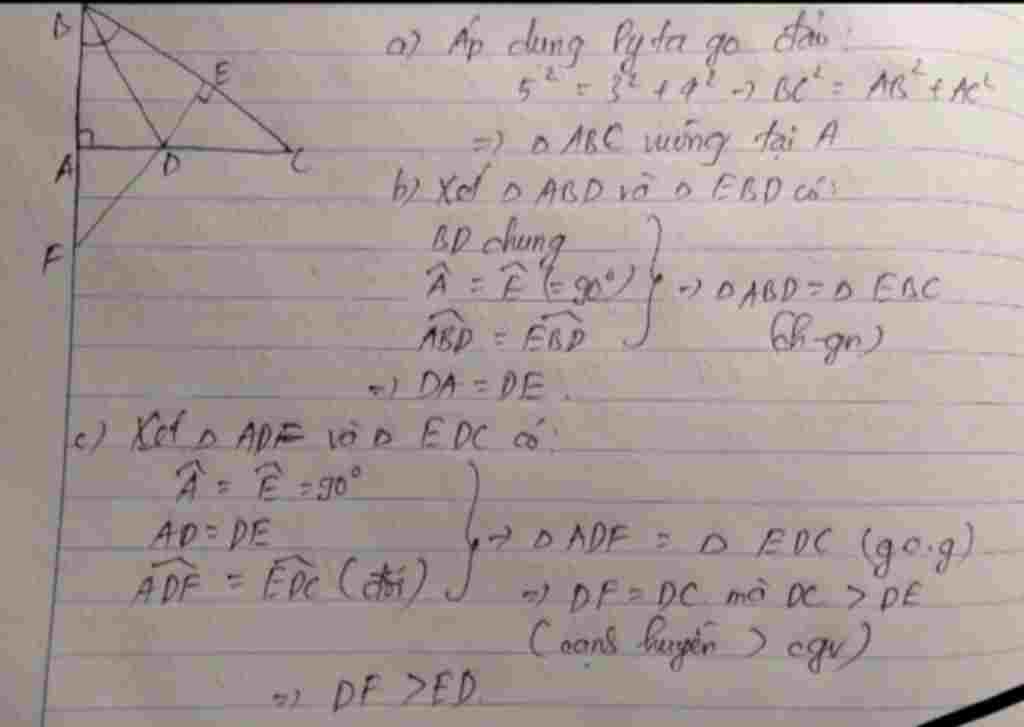 B
E
A
D
C
F
a) Áp dung Pytago đảo:
5² = 3² + 4² → BC² = AB² + AC²
=) Δ ABC vuông tại A
b) Xét Δ ABD và Δ EBD có:
BD chung
Â = Ê (= 90°)
→ Δ ABD = Δ EBC
ABD̂ = EBD̂
(ch-gn)
=) DA = DE.
c) Xét Δ ADF và Δ EDC có:
Â = Ê = 90°
AD = DE
→ Δ ADF = Δ EDC (g.c.g)
ADF̂ = EDĈ (đối)
=) DF = DC mà DC > DE
(cạnh huyền > cgv)
=) DF > ED.